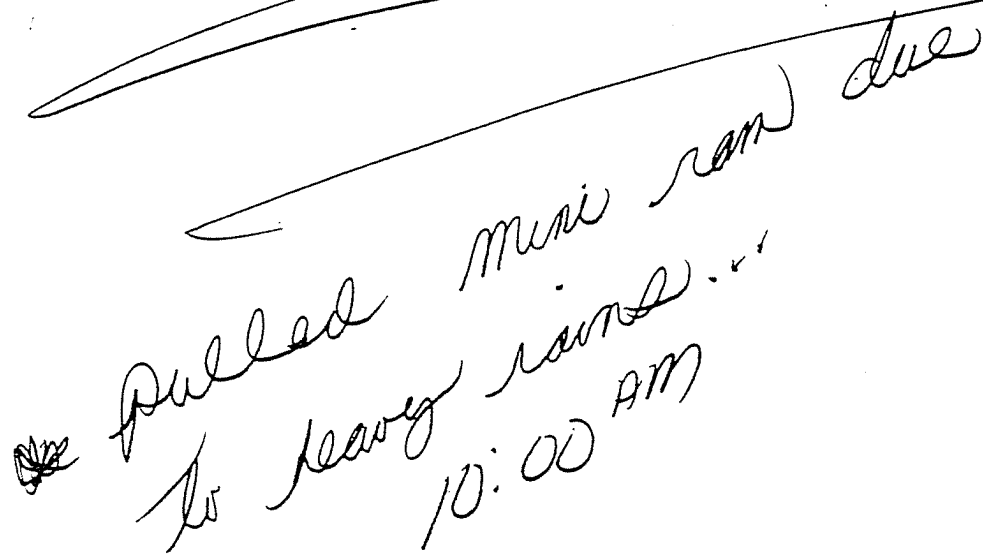 * pulled mini ram due
to heavy rains...
10:00 AM